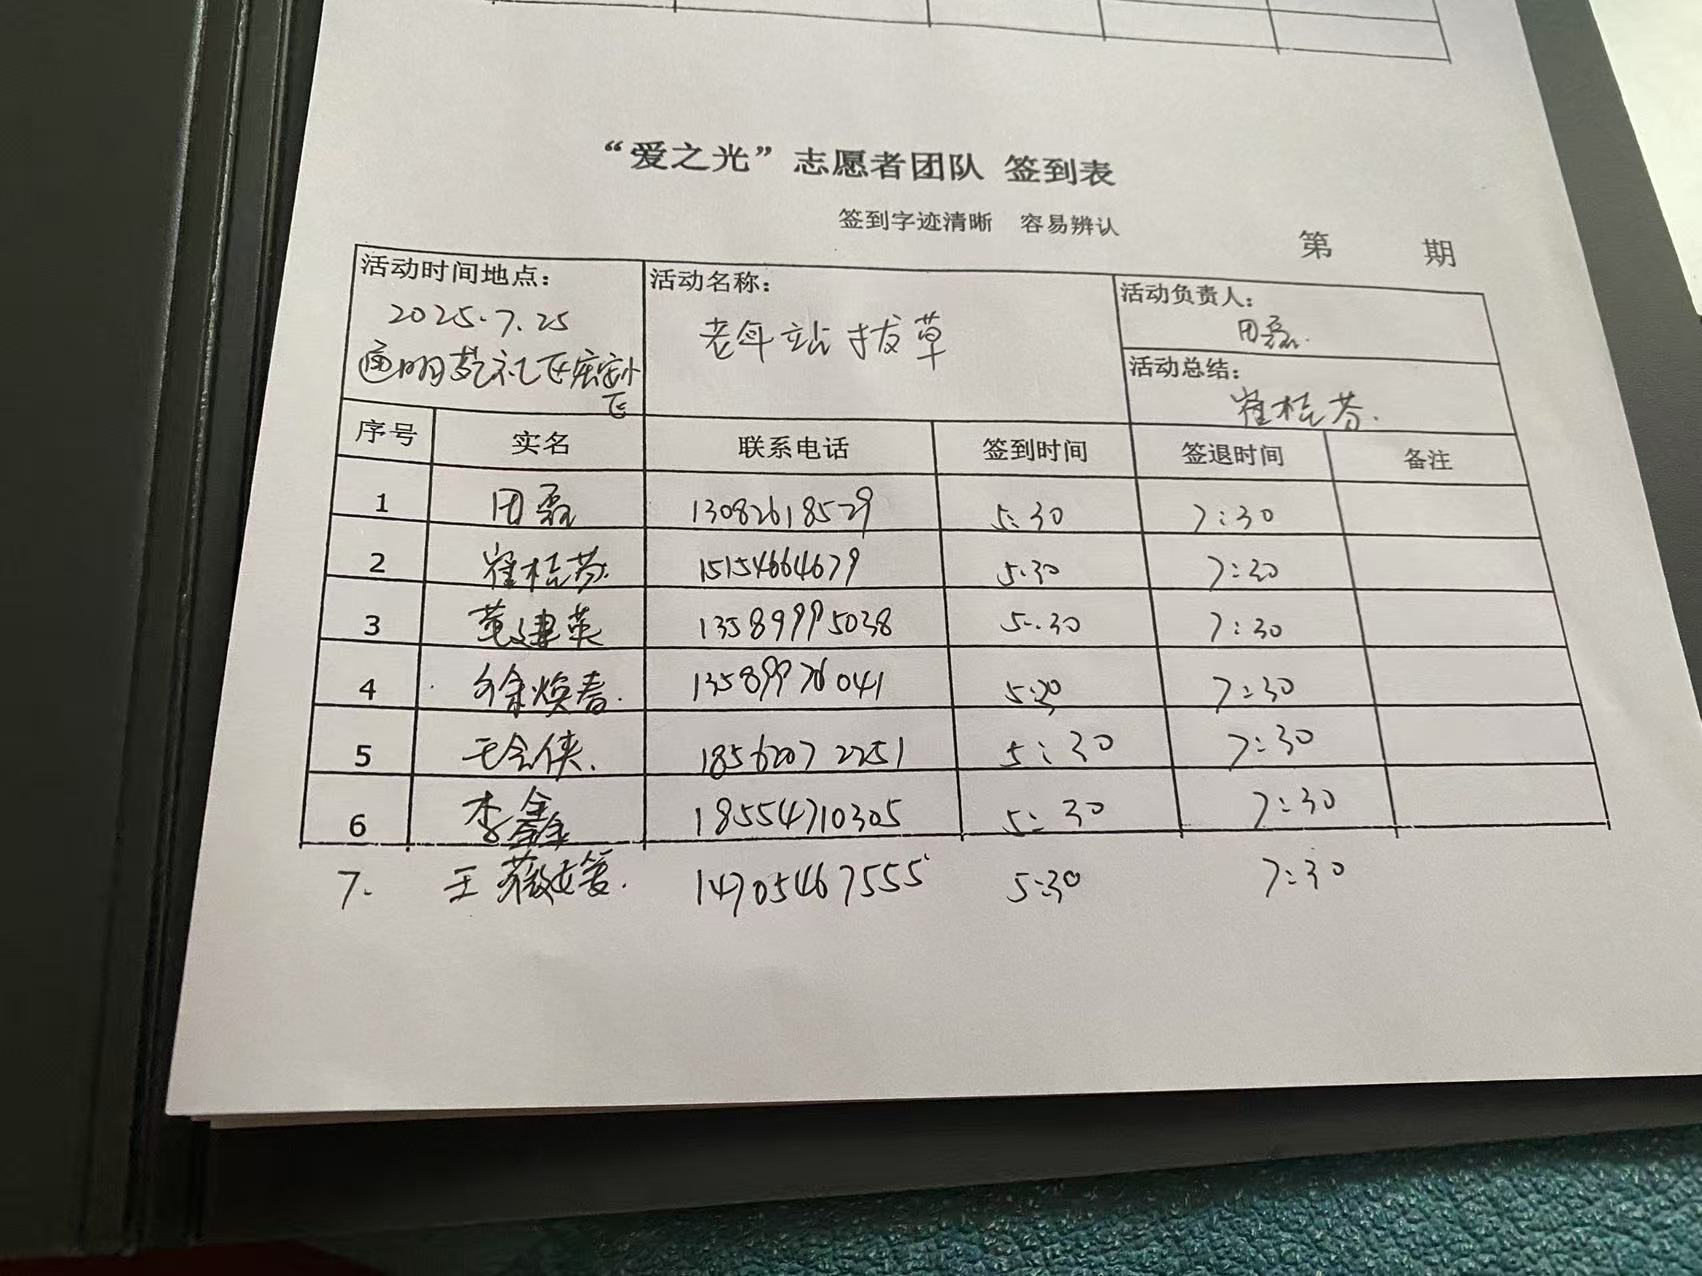 “爱之光”志愿者团队 签到表
签到字迹清晰 容易辨认
第 期
活动时间地点： 活动名称： 活动负责人：
2025.7.25 老年站拔草 田磊.
活动总结：
崔桂芬.
序号 实名 联系电话 签到时间 签退时间 备注
1 田磊 13082618529 5:30 7:30
2 崔桂芬. 15154664679 5:30 7:30
3 董建英 13589995038 5:30 7:30
4 徐焕春. 13589976041 5:30 7:30
5 王会侠. 18562072251 5:30 7:30
6 李鑫 18554710305 5:30 7:30
7. 王薇 14705467555 5:30 7:30